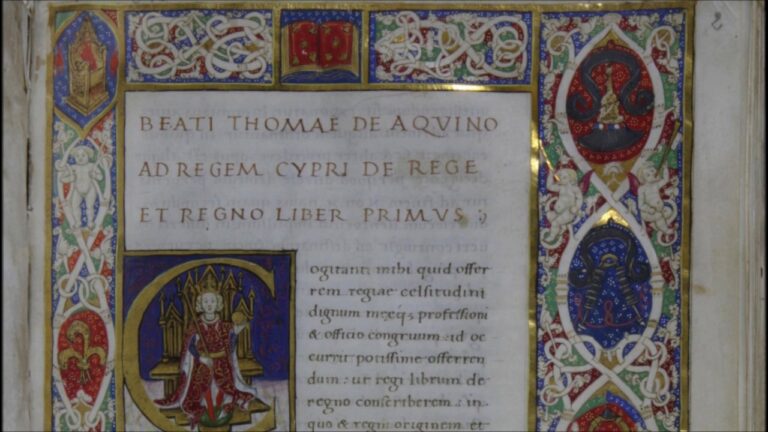 2
BEATI THOMAE DE AQVINO
AD REGEM CYPRI DE REGE
ET REGNO LIBER PRIMVS
Cogitanti mihi quid offer
rem regiae celsitudini
dignum meęq; professioni
& officio congruum: id oc
currit potissime offerren
dum: ut regi librum de
regno conscriberem: in
quo & regni originem et